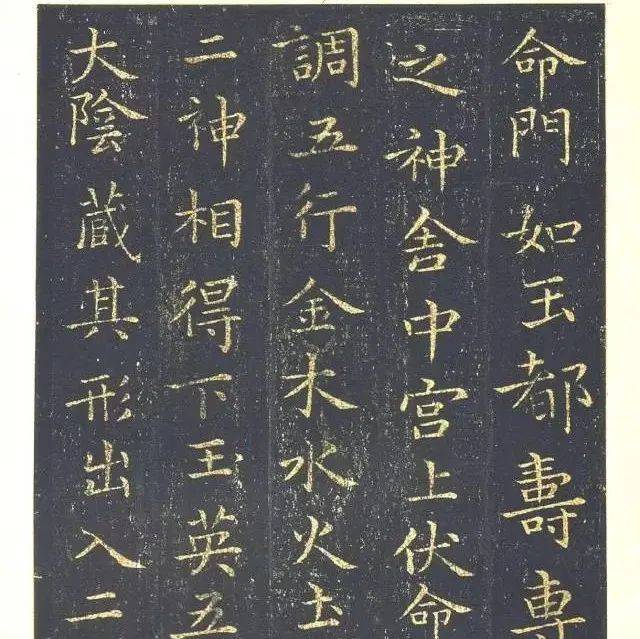 命門如玉都壽專
之神舍中宫上伏命
調五行金木水火土
二神相得下玉英五
大陰蔵其形出入二